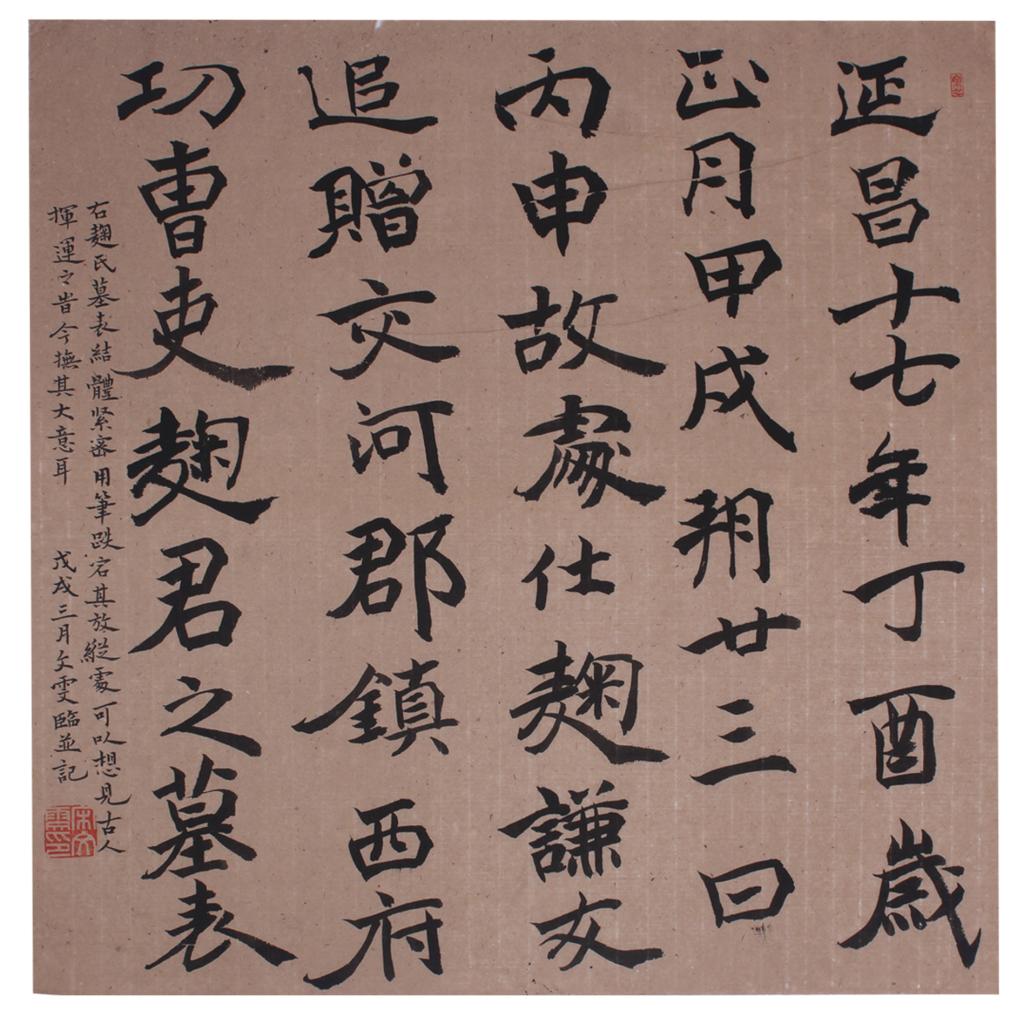 延昌十七年丁酉歲
正月甲戌朔廿三日
丙申故處仕麹謙友
追贈交河郡鎮西府
功曹吏麹君之墓表
右麹氏墓表結體緊密用筆跌宕其放縱處可以想見古人
揮運之旹今撫其大意耳 戊戌三月文雯臨並記